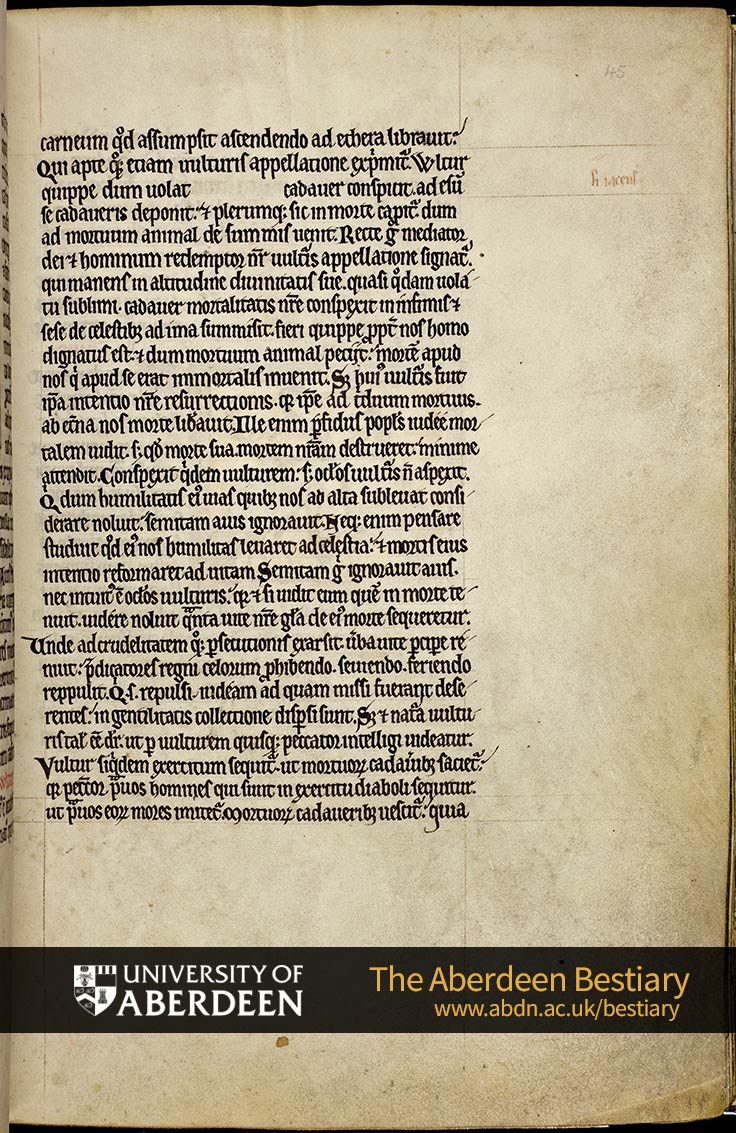 45
carneum q̊d assumpsit ascendendo ad ethera librauit.
Qui apte q̨ꝫ etiam uulturis appellatione exp̍mit̃. Vultur
quippe dum uolat cadauer conspicit. ad esũ
se cadaueris deponit. ⁊ plerumq̨ꝫ sic in morte capit̃ dum
ad mortuum animal de summis uenit. Recte g̊ mediator
dei ⁊ hominum redemptor nr̃ uult̾is appellatione signat̃.
qui manens in altitudine diuinitatis sue. quasi q̍dam uola
tu sublimi. cadauer mortalitatis nr̃e conspexit in infimis ⁊
sese de celestibꝫ ad ima summisit. fieri quippe ꝓpt̾ nos homo
dignatus est. ⁊ dum mortuum animal petijt. mortẽ apud
nos q̍ apud se erat immortalis inuenit. Sꝫ hui᷒ uult̾is fuit
ip̃a intentio nr̃e resurrectionis. qꝛ ip̃e ad t̍duum mortuus.
ab et̾na nos morte lib̾auit. Ille enim ꝑfidus popl̃s iudee mor
talem uidit. s꞉ q̊d morte sua mortem nr̃am destrueret. minime
attendit. Conspexit q̍dem uulturem. s꞉ oc̃los uult̾is ñ aspexit.
Q̍ dum humilitatis ei᷒ uias quibꝫ nos ad alta subleuat consi
derare noluit. semitam auis ignorauit. Neq̨ꝫ enim pensare
studuit q̊d ei᷒ nos humilitas leuaret ad celestia. ⁊ mortis eius
intentio reformaret ad uitam. Semitam g̊ ignorauit auis.
nec intuit᷒ ẽ oc̃los uulturis. qꝛ ⁊ si uidit eum quẽ in morte te
nuit. uidere noluit q̃nta uite nr̃e gl̃a de ei᷒ morte sequeretur.
Unde ad crudelitatem q̨ꝫ ꝑsecutionis exarsit. ũba uite ꝑcipe re
nuit. p̃dicatores regni celorum ꝓhibendo. seuiendo. feriendo
reppulit. Q̍. s. repulsi. iudeam ad quam missi fuerant dese
rentes. in gentilitatis collectione disp̾si sunt. Sꝫ ⁊ nat̾a uultu
ris tal̃ eẽ dr̃. ut ꝑ uulturem quisq̨ꝫ peccator intelligi uideatur.
Vultur siq̍dem exercitum sequit̃. ut mortuoꝝ cadau̾ibꝫ saciet̃.
qꝛ pecc̃or p̃uos homines qui sunt in exercitu diaboli sequitur.
ut p̃uos eoꝝ mores imitet̃. Mortuoꝝ cadaueribꝫ uescit̃. quia
UNIVERSITY OF
ABERDEEN
The Aberdeen Bestiary
www.abdn.ac.uk/bestiary